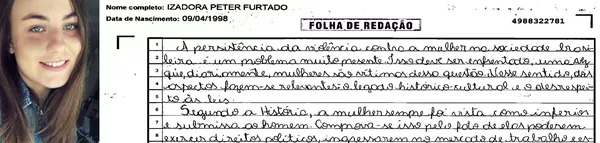 Nome completo: IZADORA PETER FURTADO
Data de Nascimento: 09/04/1998
FOLHA DE REDAÇÃO
4988322781
1 A persistência da violência contra a mulher na sociedade brasi-
2 leira é um problema muito presente. Isso deve ser enfrentado, uma vez
3 que, diariamente, mulheres são vítimas dessa questão. Nesse sentido, dois
4 aspectos fazem-se relevantes: o legado histórico-cultural e o desrespei-
5 to às leis.
6 Segundo a História, a mulher sempre foi vista como inferior
7 e submissa ao homem. Comprova-se isso pelo fato de elas poderem
8 exercer direitos políticos, ingressarem no mercado de trabalho e es-